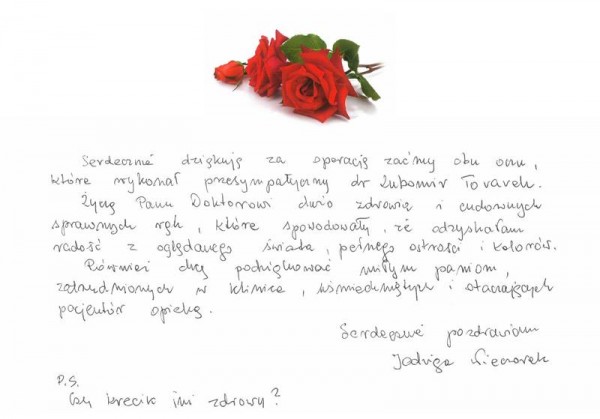 Serdecznie dziękuję za operację zaćmy obu oczu,
które wykonał przesympatyczny dr Lubomir Tovarek.
Życzę Panu Doktorowi dużo zdrowia i cudownych
sprawnych rąk, które spowodowały, że odzyskałam
radość z oglądanego świata, pełnego ostrości i kolorów.
Również chcę podziękować miłym paniom,
zatrudnionych w klinice, uśmiechniętych i otaczających
pacjentów opieką.
Serdecznie pozdrawiam
Jadwiga
P.S.
Czy krecik już zdrowy?